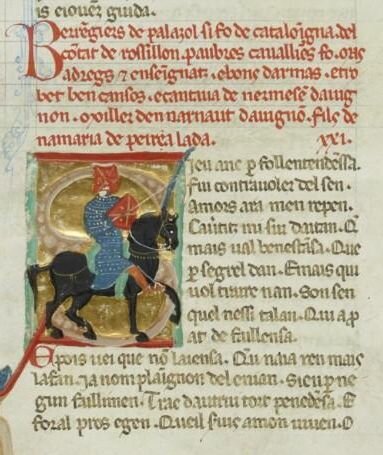 is ꝑ iouen guida.
Berẽgiers de palazol si fo de cataloigna del
cõtat de rossillon. paubres cavalliers fo. mas
adregz ⁊ enseignatz. ebons darmas. etro
bet ben cansos. ecantava de nermesẽ dauig
non. moiller den narnaut dauignõ. fils de
namaria de peirẽa lada. XXI.
Sieu anc ꝑ fol lentendẽssa.
Fui contrauoler del sen.
Amors ara men repen.
Cautitz mi sui daitan. Q̃
mais ual benestãsa. Que
ꝑ segrel dan. Emais qui
uol traire nan. Son sen
quel nessi talan. Qui aꝑ
at de faillensa.
E pois uei que nõ laiensa. Qui naia ren mais
lafan. Ja nom plaĩgnon del enian. Sieu ꝑ ne
gun faillimen. Trac dautrui tort penedẽsa. E
foral pros egen. Queil sieus amon uiuen. O